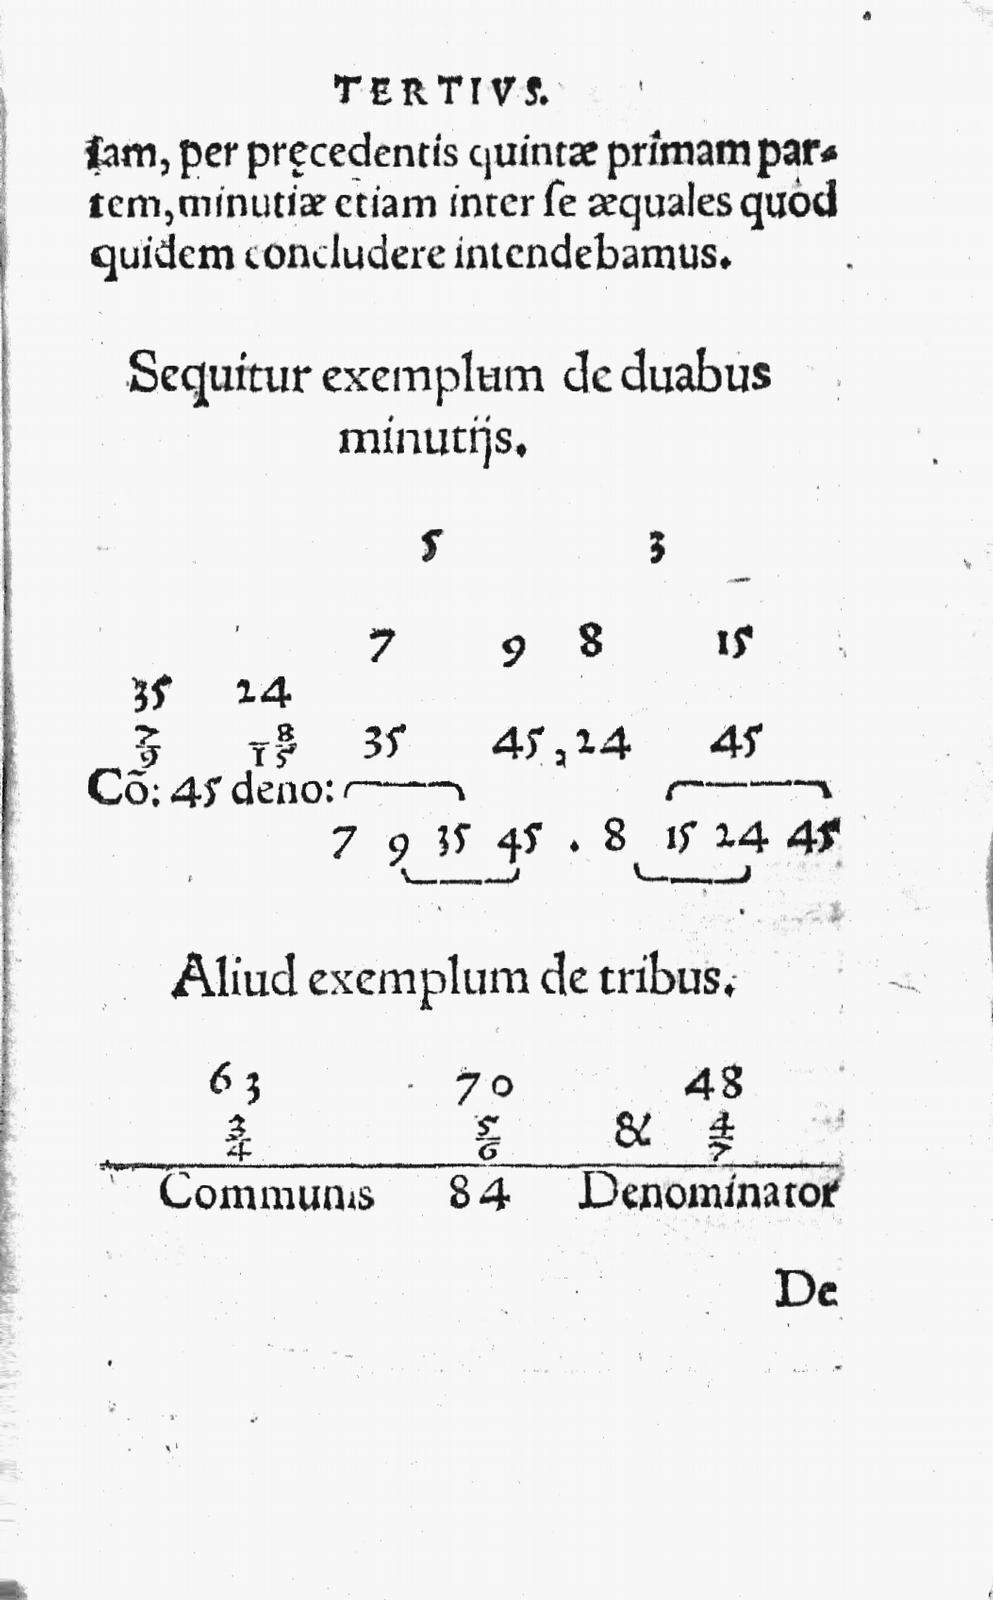 TERTIVS.
ſam, per pręcedentis quintæ primam par-
tem, minutiæ etiam inter ſe æquales quòd
quidem concludere intendebamus.
Sequitur exemplum de duabus
minutijs.
5 3
7 9 8 15
35 24
7/9 8/15 35 45, 24 45
Cõ: 45 deno:
7 9 35 45 . 8 15 24 45
Aliud exemplum de tribus.
63 70 48
3/4 5/6 & 4/7
Communis 84 Denominator
De